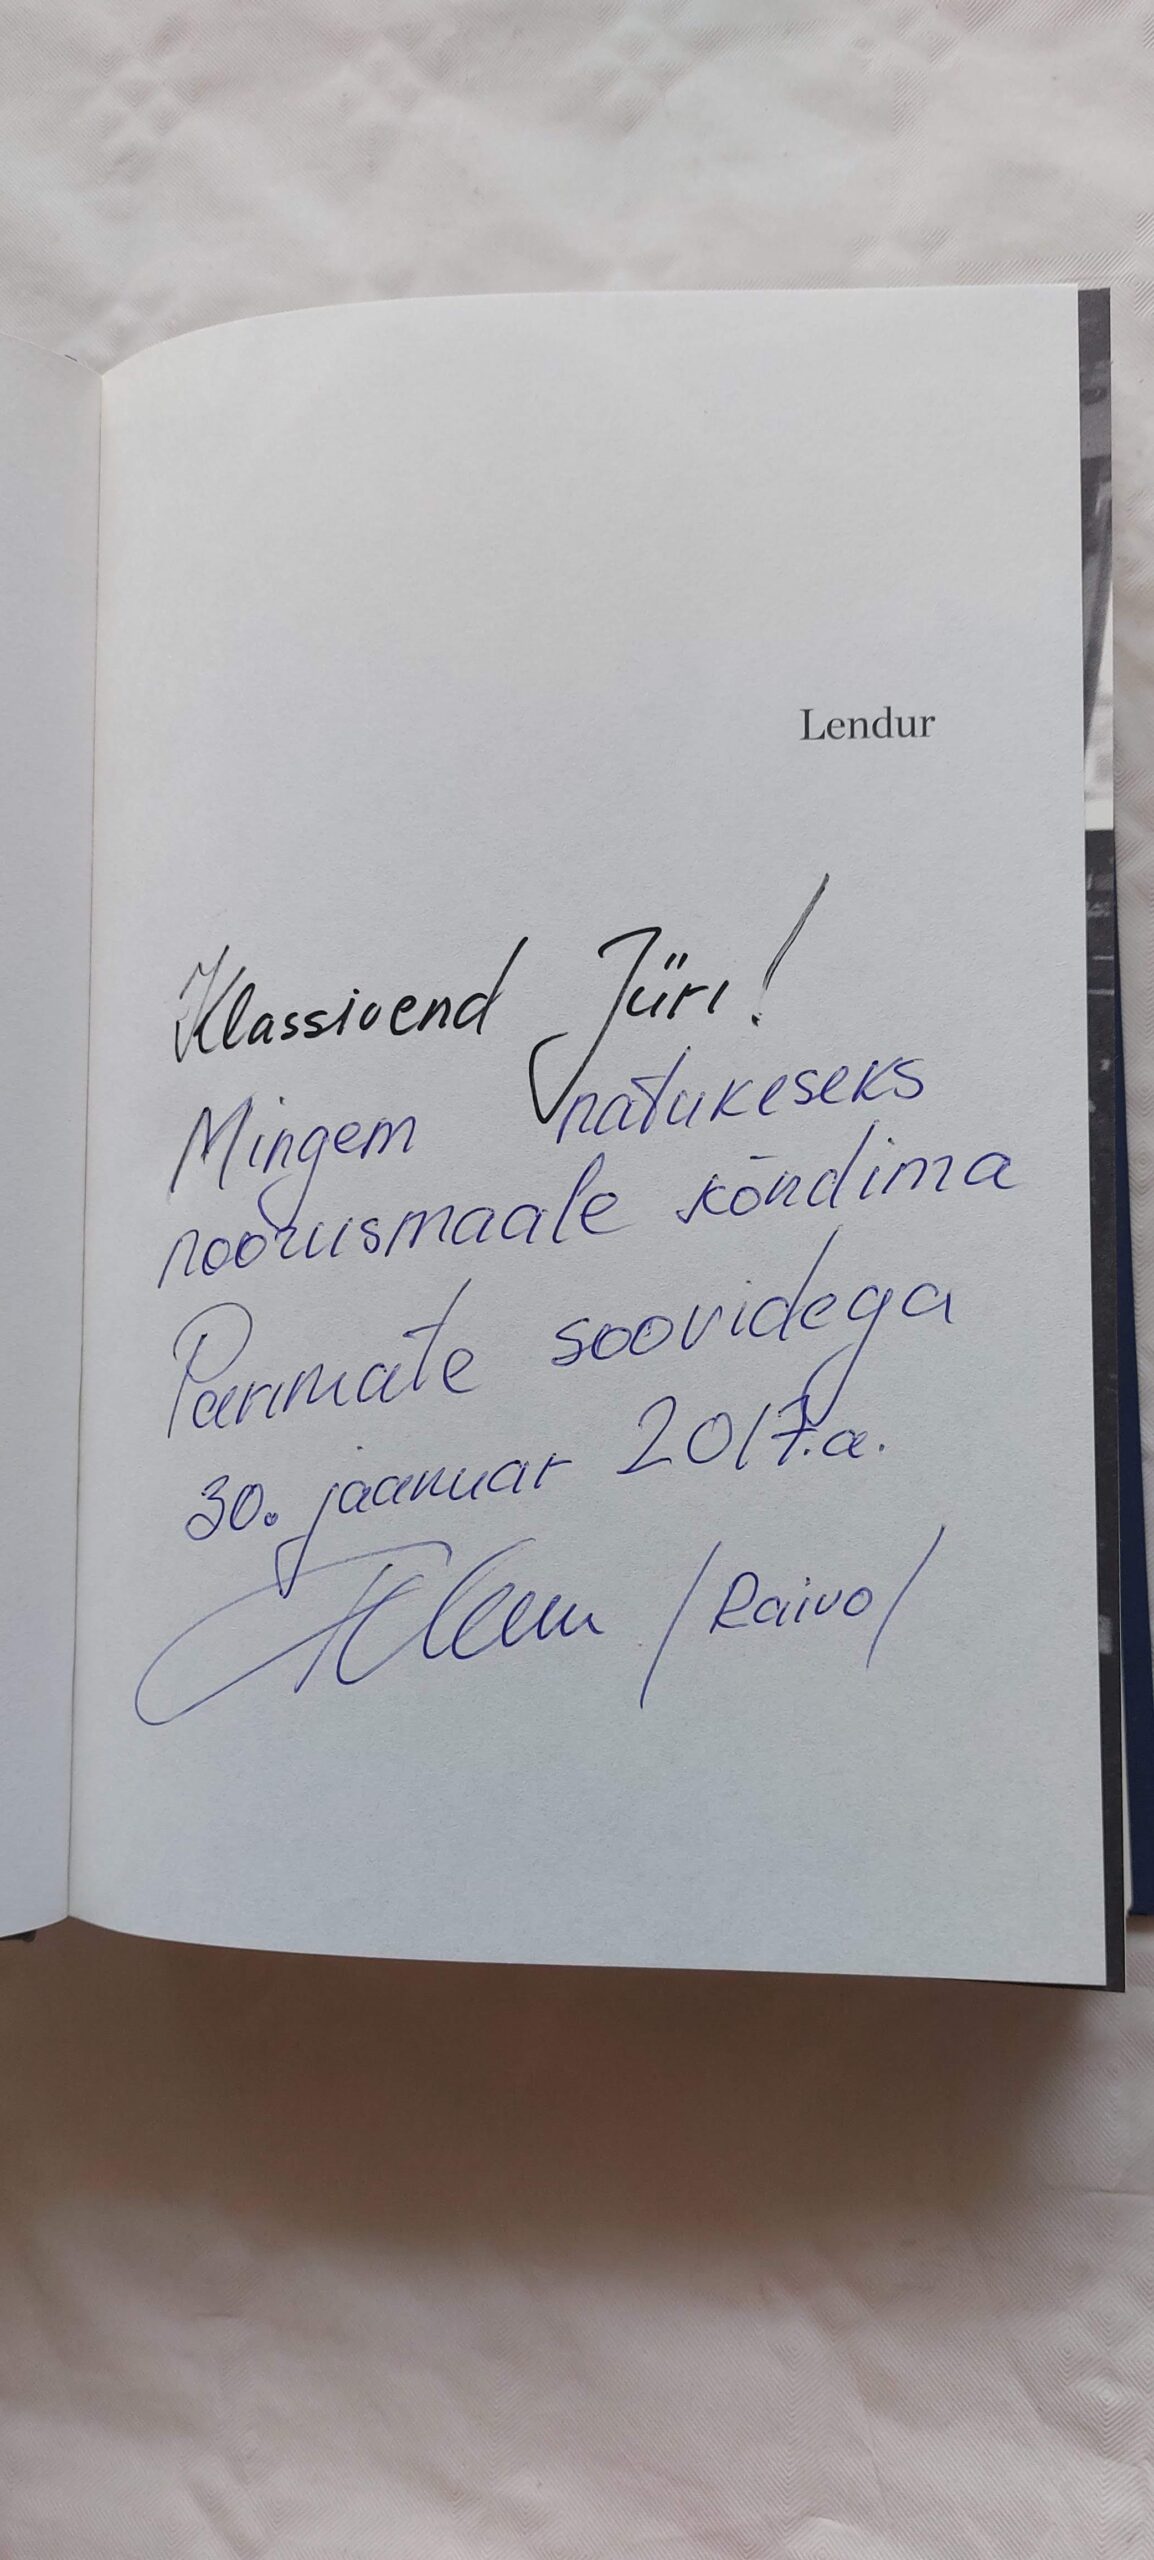 Lendur
Klassivend Jüri!
Mingem natukeseks
noorusmaale kõndima
Parimate soovidega
30. jaanuar 2017.a.
/Raivo/